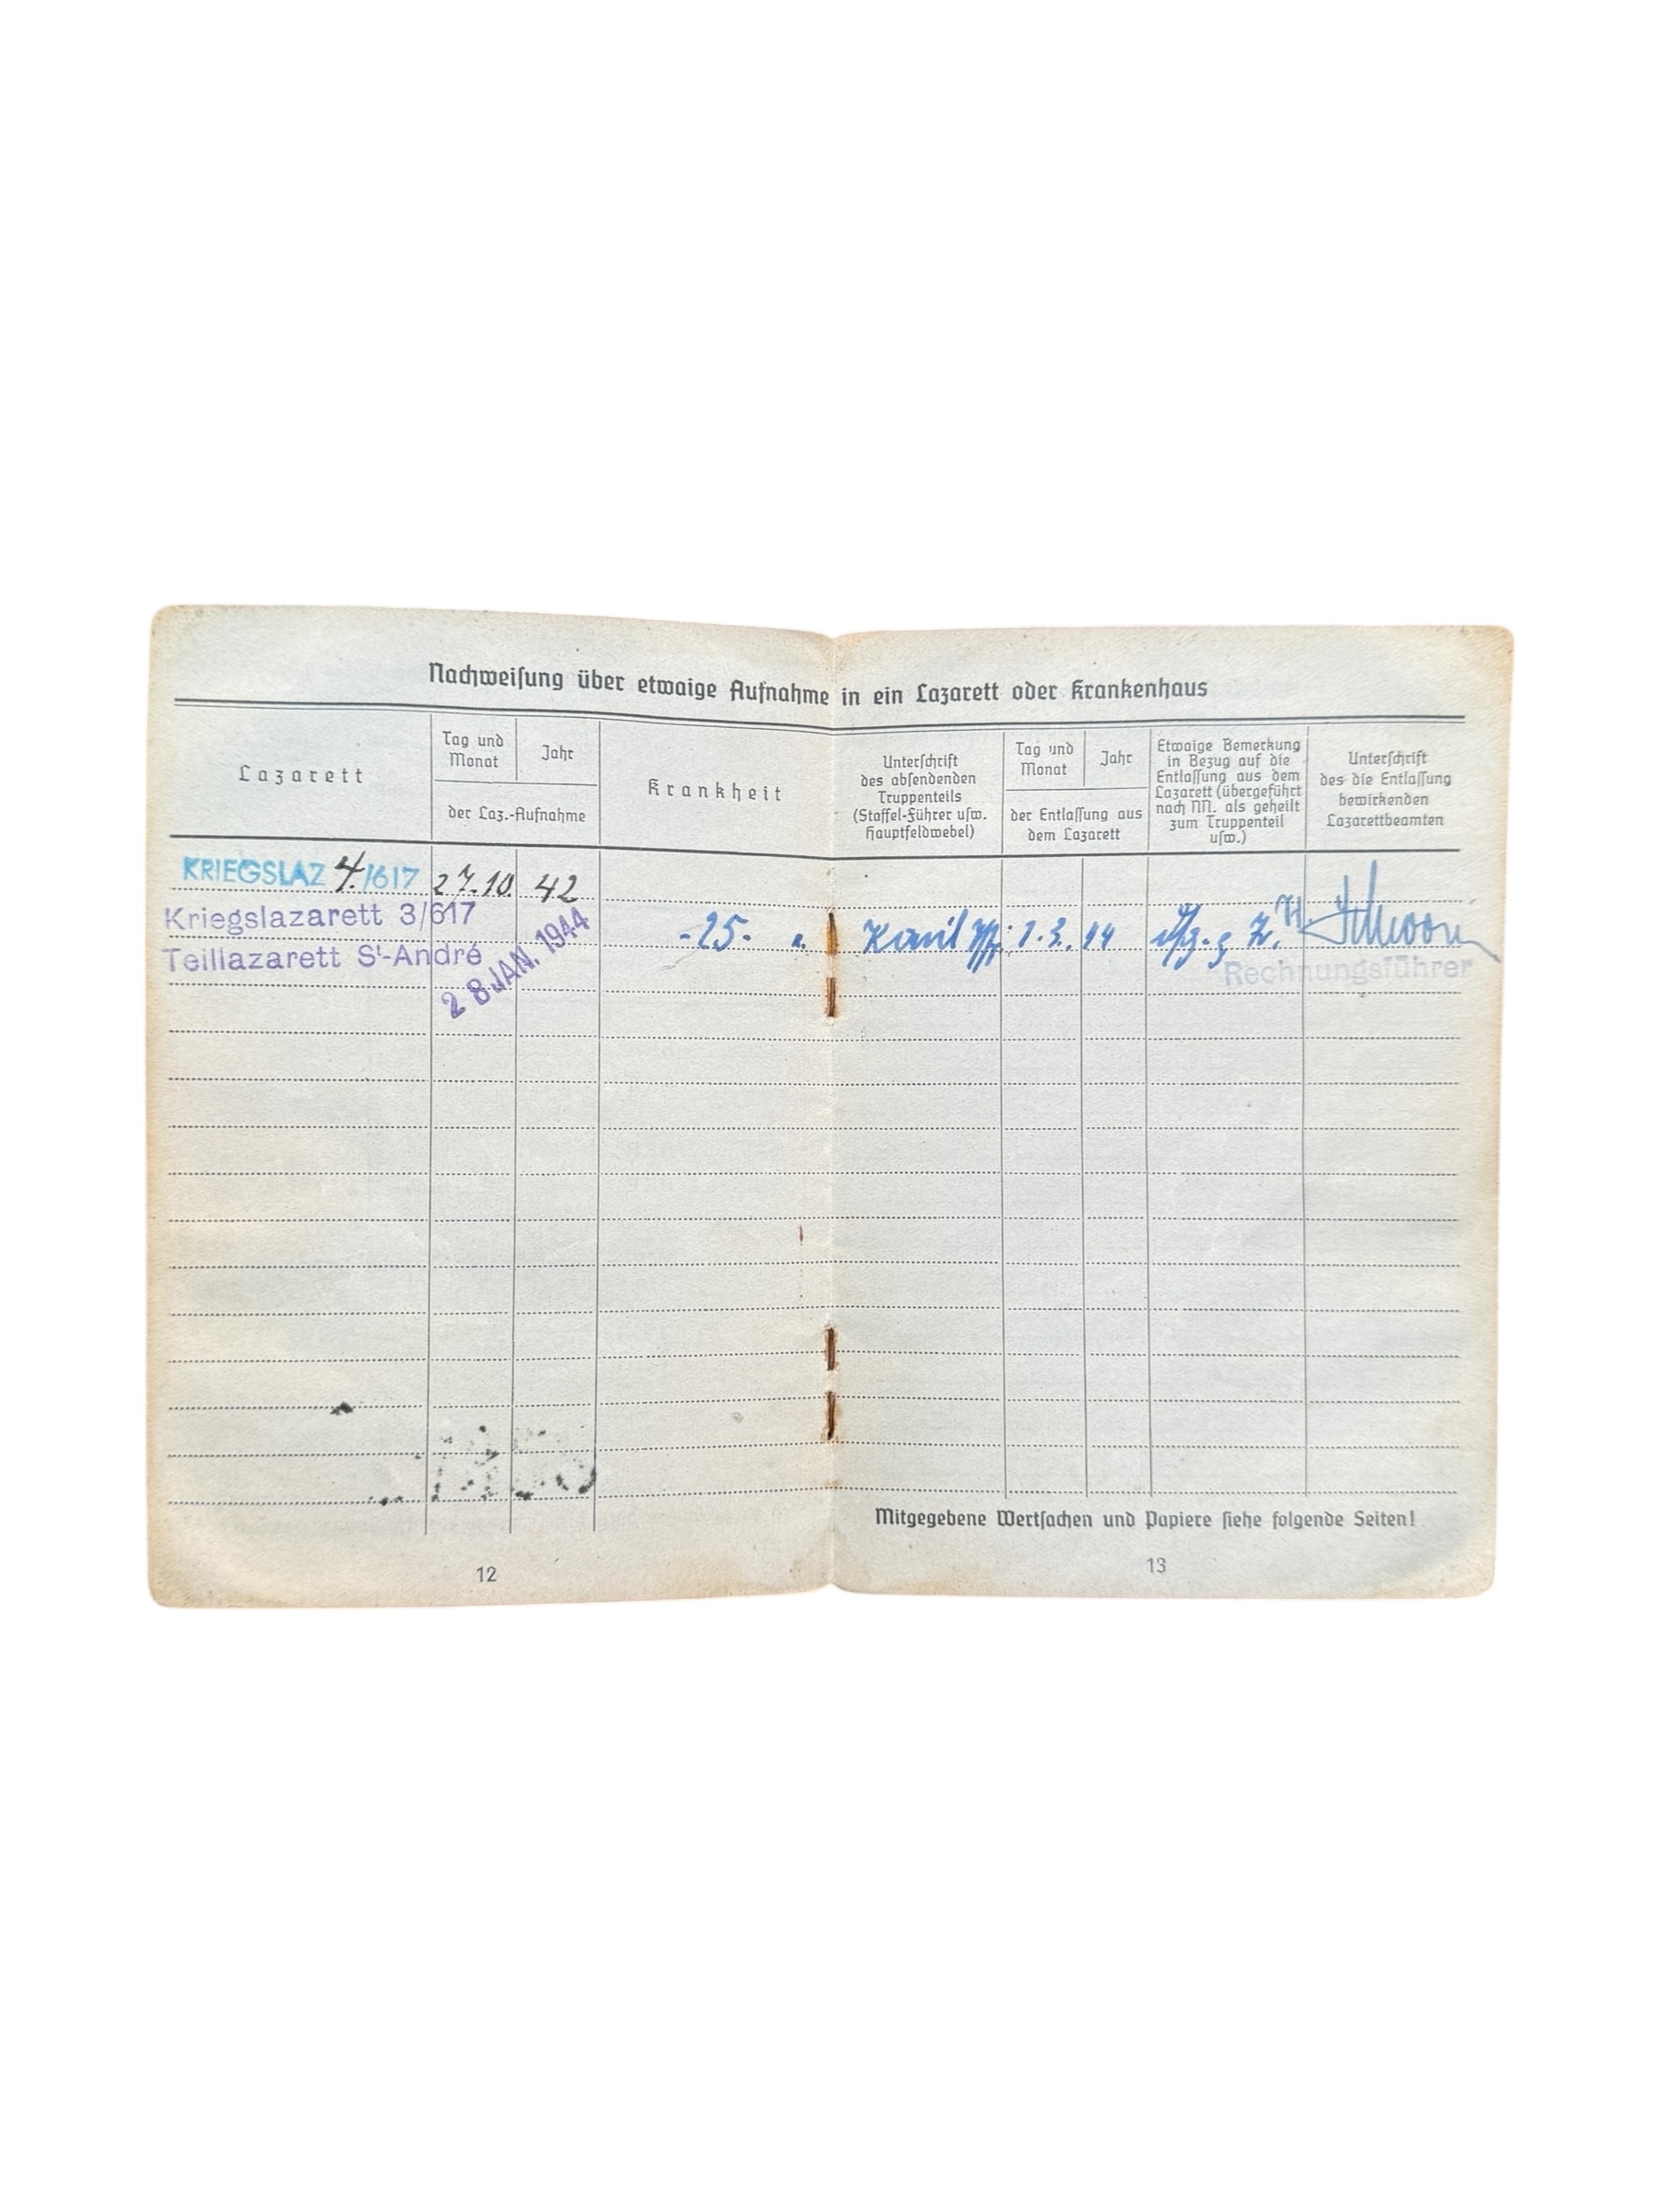 Nachweiſung über etwaige Aufnahme in ein Lazarett oder Krankenhaus
Lazarett
Tag und
Monat
Jahr
der Laz.-Aufnahme
Krankheit
Unterſchrift
des abſendenden
Truppenteils
(Staffel-Führer uſw.
Hauptfeldwebel)
Tag und
Monat
Jahr
der Entlaſſung aus
dem Lazarett
Etwaige Bemerkung
in Bezug auf die
Entlaſſung aus dem
Lazarett (übergeführt
nach NN. als geheilt
zum Truppenteil
uſw.)
Unterſchrift
des die Entlaſſung
bewirkenden
Lazarettbeamten
KRIEGSLAZ 4./617 27.10. 42
Kriegslazarett 3/617
Teillazarett St-André
28 JAN. 1944
-25- 1.3. 44
Rechnungsführer
Mitgegebene Wertſachen und Papiere ſiehe folgende Seiten!
12
13